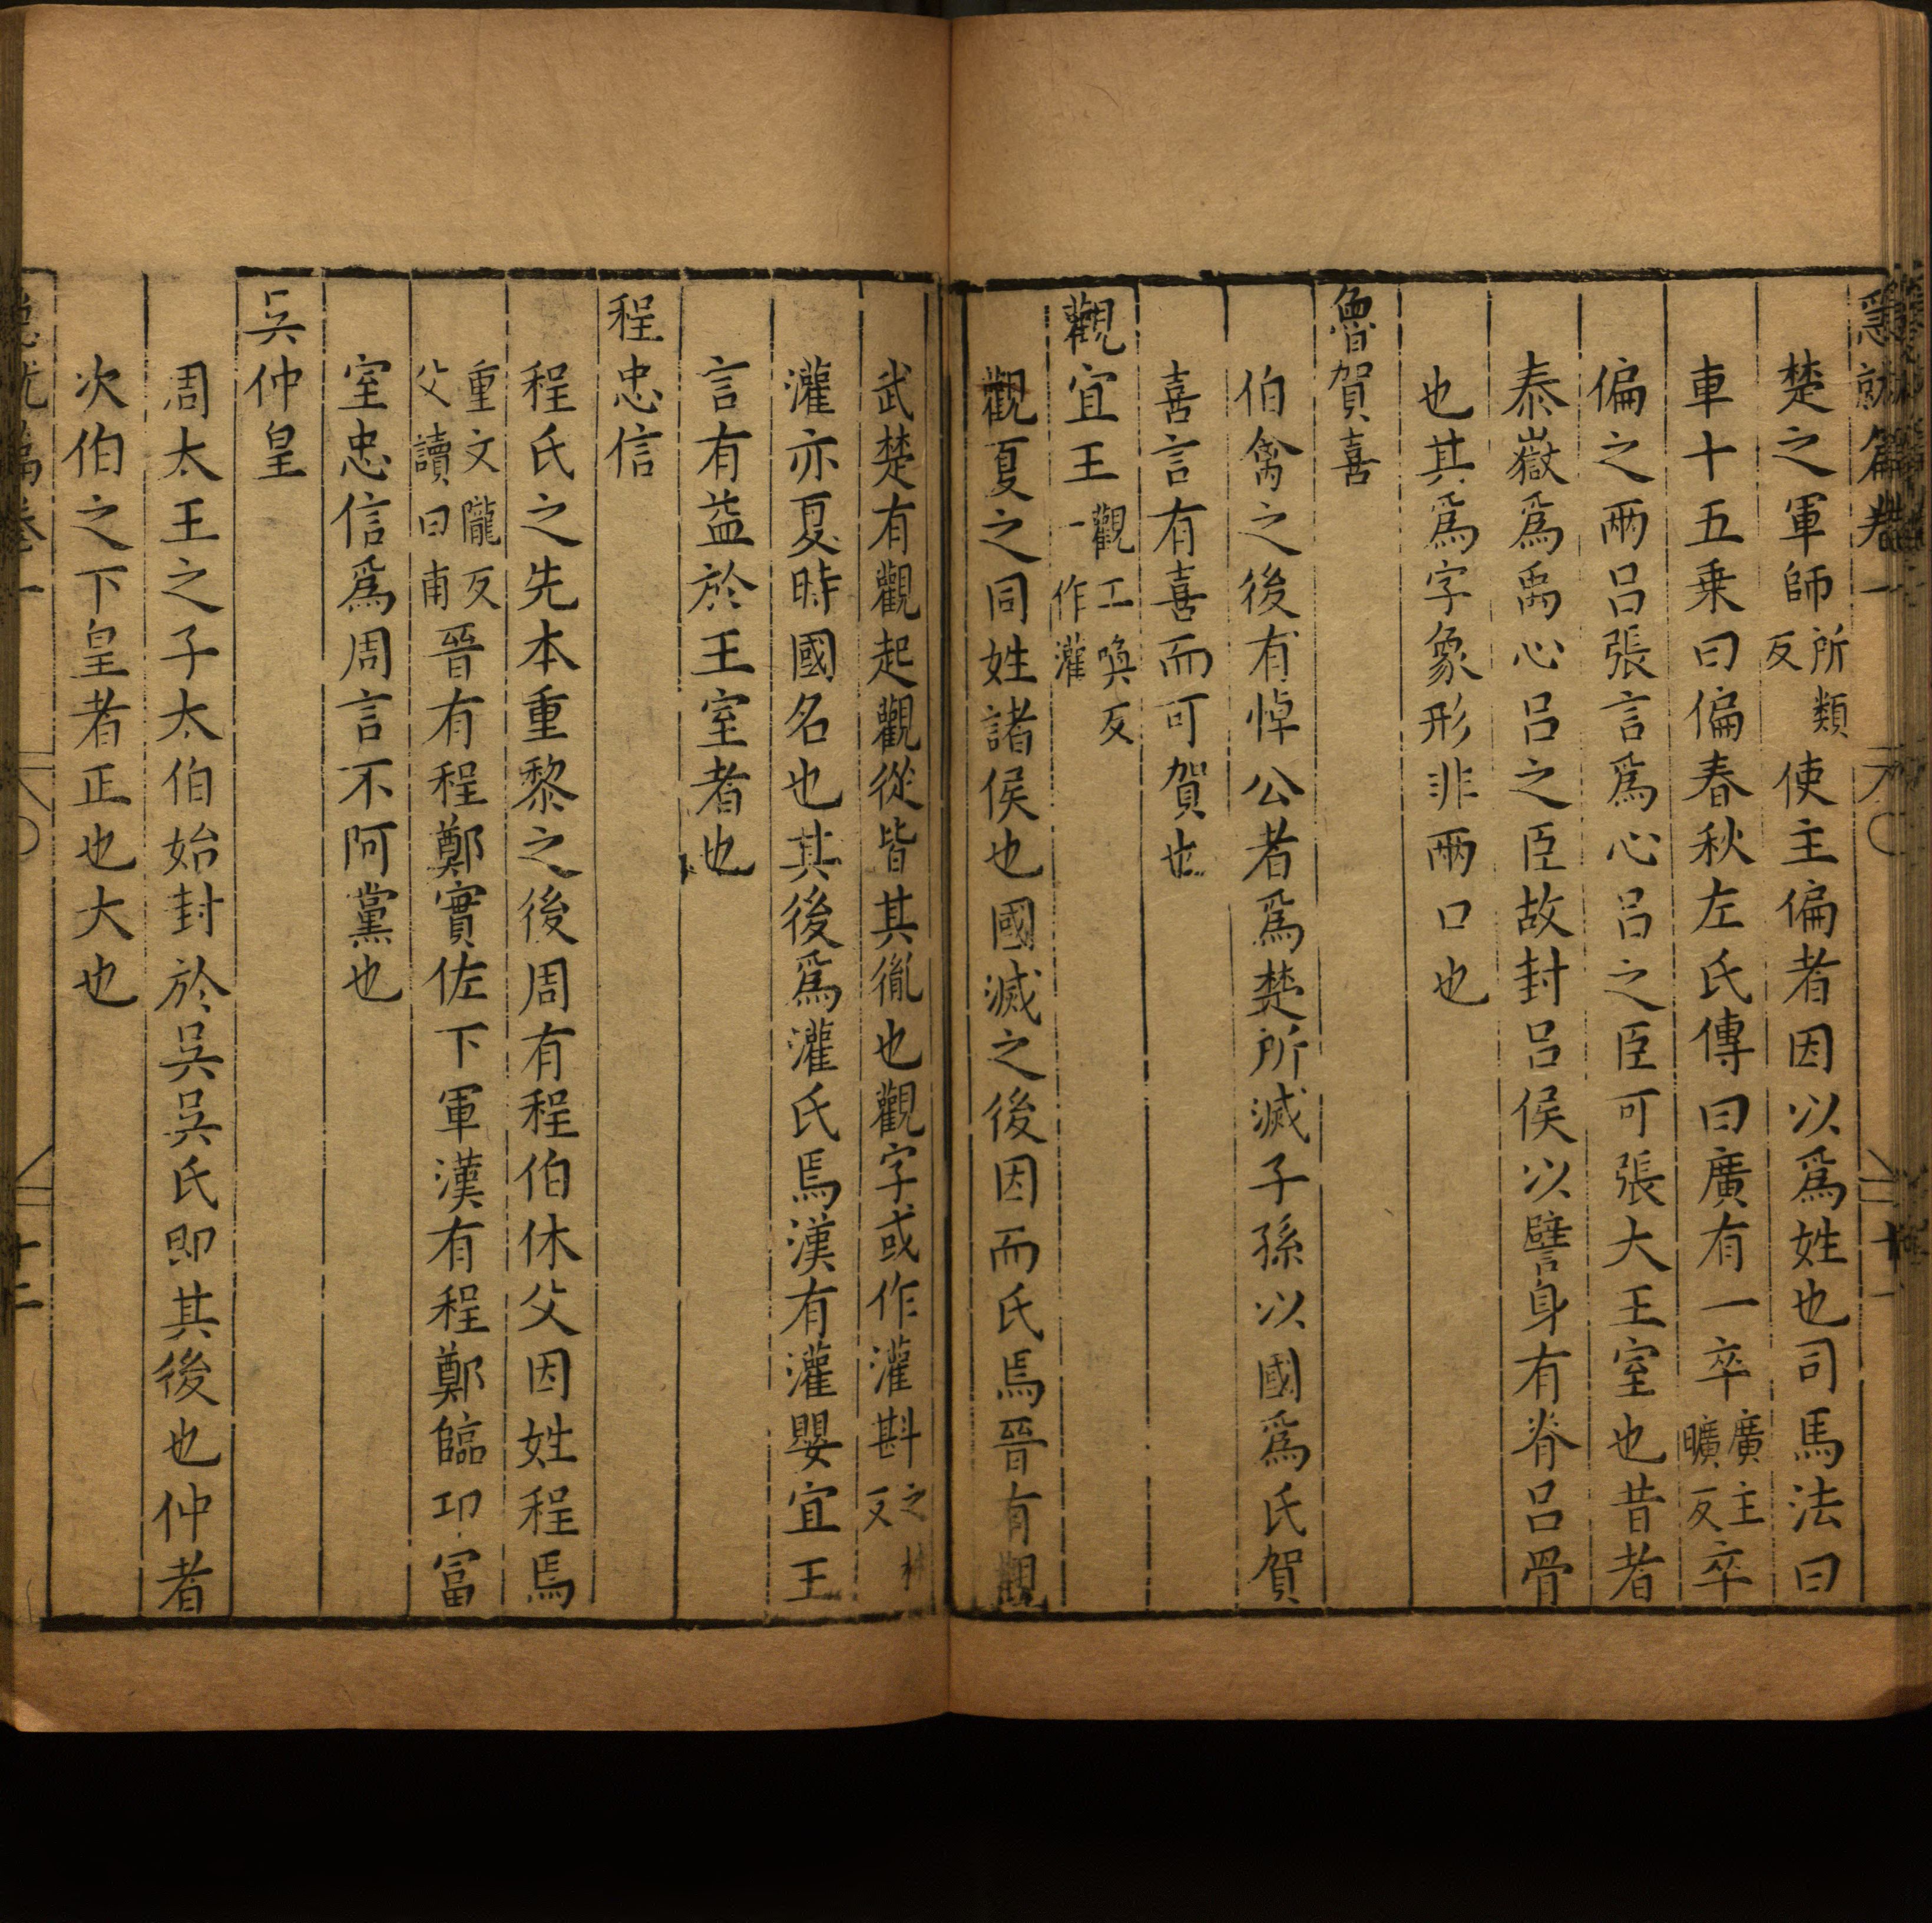 急就篇卷一
楚之軍師所類反使主偏者因以爲姓也司馬法曰
車十五乗曰偏春秋左氏傳曰廣有一卒廣主曠反卒
偏之兩吕張言爲心吕之臣可張大王室也昔者
泰嶽爲禹心吕之臣故封吕侯以譬身有脊吕骨
也其爲字象形非兩口也
魯賀喜
伯禽之後有悼公者爲楚所滅子孫以國爲氏賀
喜言有喜而可賀也
觀宜王觀工喚反一作灌
觀夏之同姓諸侯也國滅之後因而氏焉晉有觀
武楚有觀起觀從皆其胤也觀字或作灌斟之林反
灌亦夏時國名也其後爲灌氏焉漢有灌嬰宜王
言有益於王室者也
程忠信
程氏之先本重黎之後周有程伯休父因姓程焉
重文隴反父讀曰甫晉有程鄭實佐下軍漢有程鄭臨邛富
室忠信爲周言不阿黨也
吳仲皇
周太王之子太伯始封於吳吳氏即其後也仲者
次伯之下皇者正也大也
急就篇卷一
十二